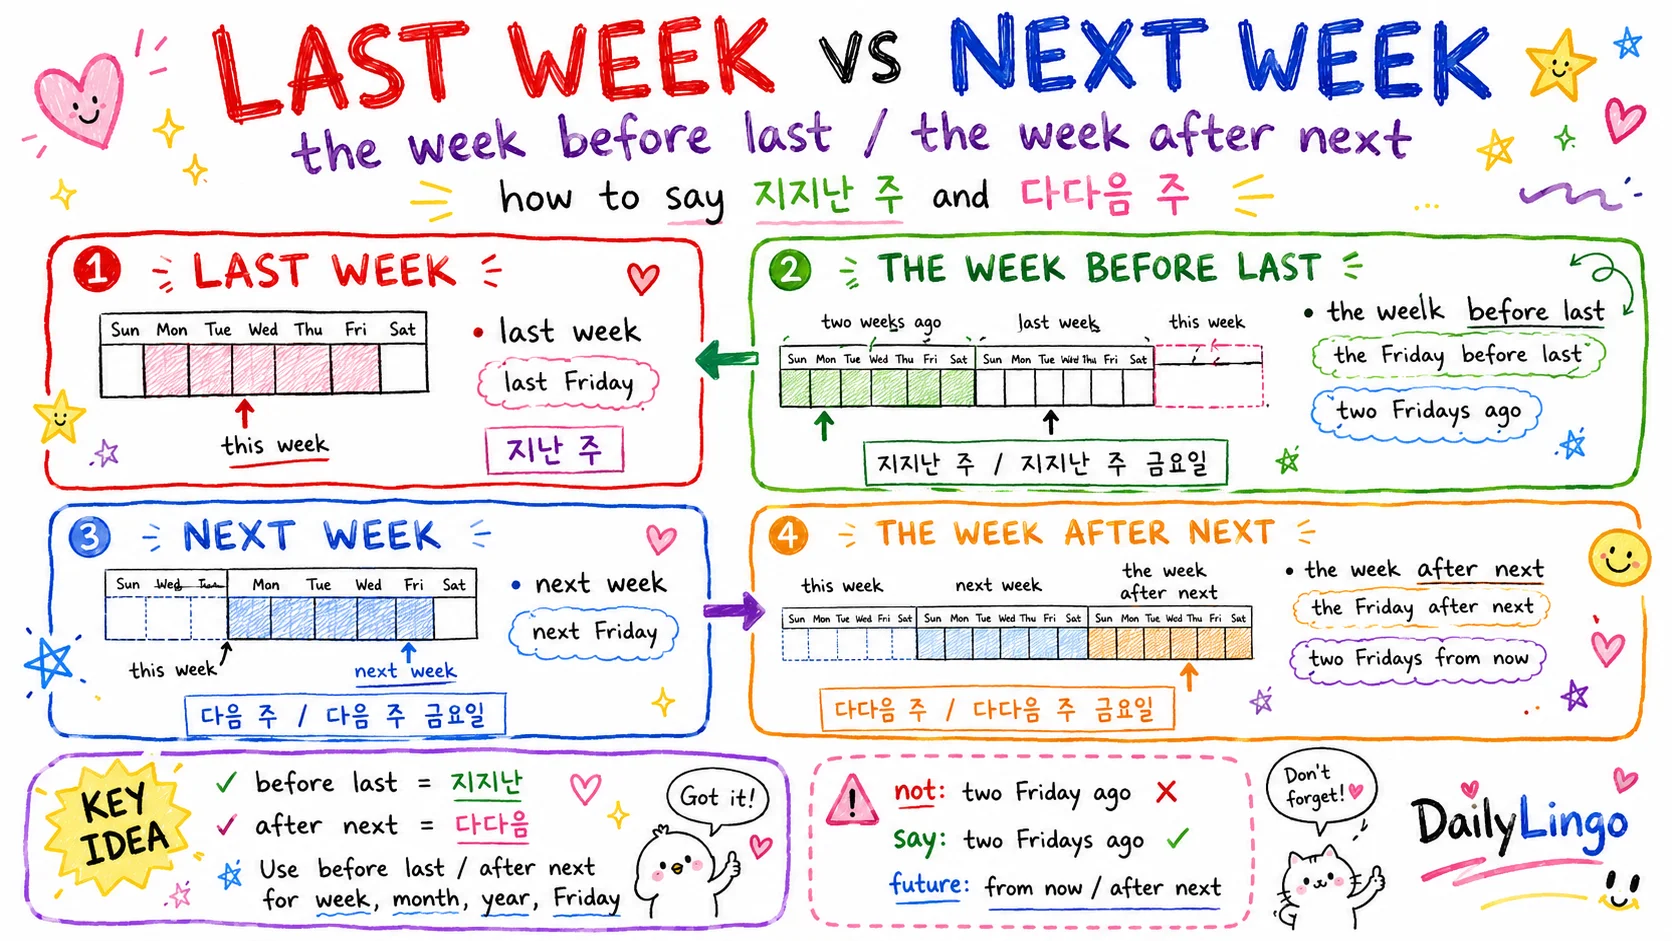 LAST WEEK vs NEXT WEEK
the week before last / the week after next
how to say 지지난 주 and 다다음 주
1 LAST WEEK
Sun Mon Tue Wed Thu Fri Sat
this week
• last week
last Friday
지난 주
2 THE WEEK BEFORE LAST
two weeks ago last week this week
Sun Mon Tue Wed Thu Fri Sat Sun Mon Tue Wed Thu Fri Sat
지지난 주 / 지지난 주 금요일
• the week before last
the Friday before last
two Fridays ago
3 NEXT WEEK
Sun Wed Tue Mon Tue Wed Fri Sat
this week next week
• next week
next Friday
다음 주 / 다음 주 금요일
4 THE WEEK AFTER NEXT
this week next week the week
after next
Sun Mon Tue Wed Fri Sat Sun Mon Tue Wed Thu Fri Sat Sun Mon Tue Wed Thu Fri Sat
다다음 주 / 다다음 주 금요일
• the week after next
the Friday after next
two Fridays from now
KEY
IDEA
✓ before last = 지지난
✓ after next = 다다음
Use before last / after next
for week, month, year, Friday
Got it!
! not: two Friday ago X
say: two Fridays ago ✓
future: from now / after next
Don't
forget!
DailyLingo